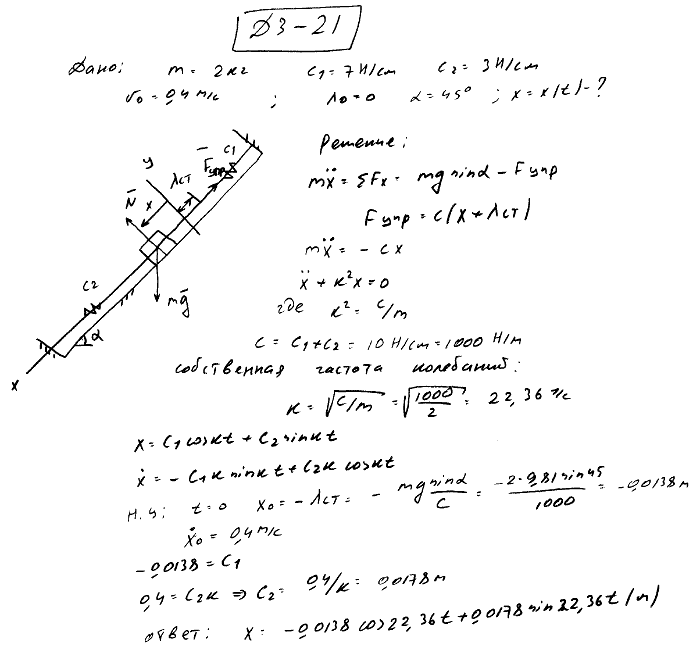 Д3-21
Дано: m = 2кг C1 = 7 Н/см C2 = 3 Н/см
v0 = 0,4 м/с ; λ0 = 0 α = 45° ; x = x(t) - ?
Решение:
mẍ = ΣFx = mg sinα - Fупр
Fупр = c(x + λст)
mẍ = - cx
ẍ + к²x = 0
где к² = c/m
C = C1 + C2 = 10 Н/см = 1000 Н/м
собственная частота колебаний:
к = √c/m = √1000/2 = 22,36 1/с
x = C1 cosкt + C2 sinкt
ẋ = - C1к sinкt + C2к cosкt
н.у: t = 0 x0 = - λст = - mg sinα/C = -2·9,81 sin45/1000 = -0,0138 м
ẋ0 = 0,4 м/с
-0,0138 = C1
0,4 = C2к ⇒ C2 = 0,4/к = 0,0178 м
ответ: x = -0,0138 cos22,36t + 0,0178 sin22,36t (м)
y
x
λст
F̄упр
C1
N̄
C2
mḡ
α
x